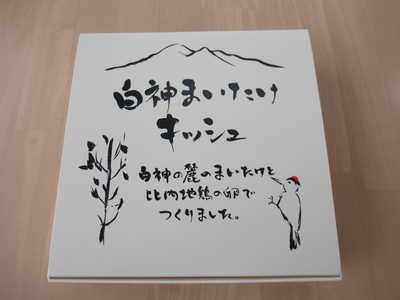 白神まいたけ
キッシュ
白神の麓のまいたけと
比内地鶏の卵で
つくりました。